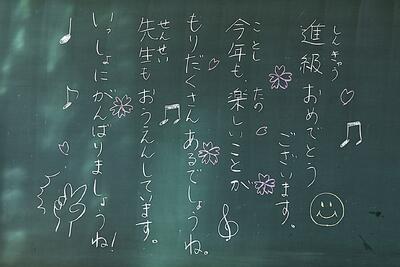 進級おめでとう
しんきゅう
ございます。
今年も、楽しいことが
ことし
たの
もりだくさんあるでしょうね。
先生もおうえんしています。
せんせい
いっしょにがんばりましょうね!